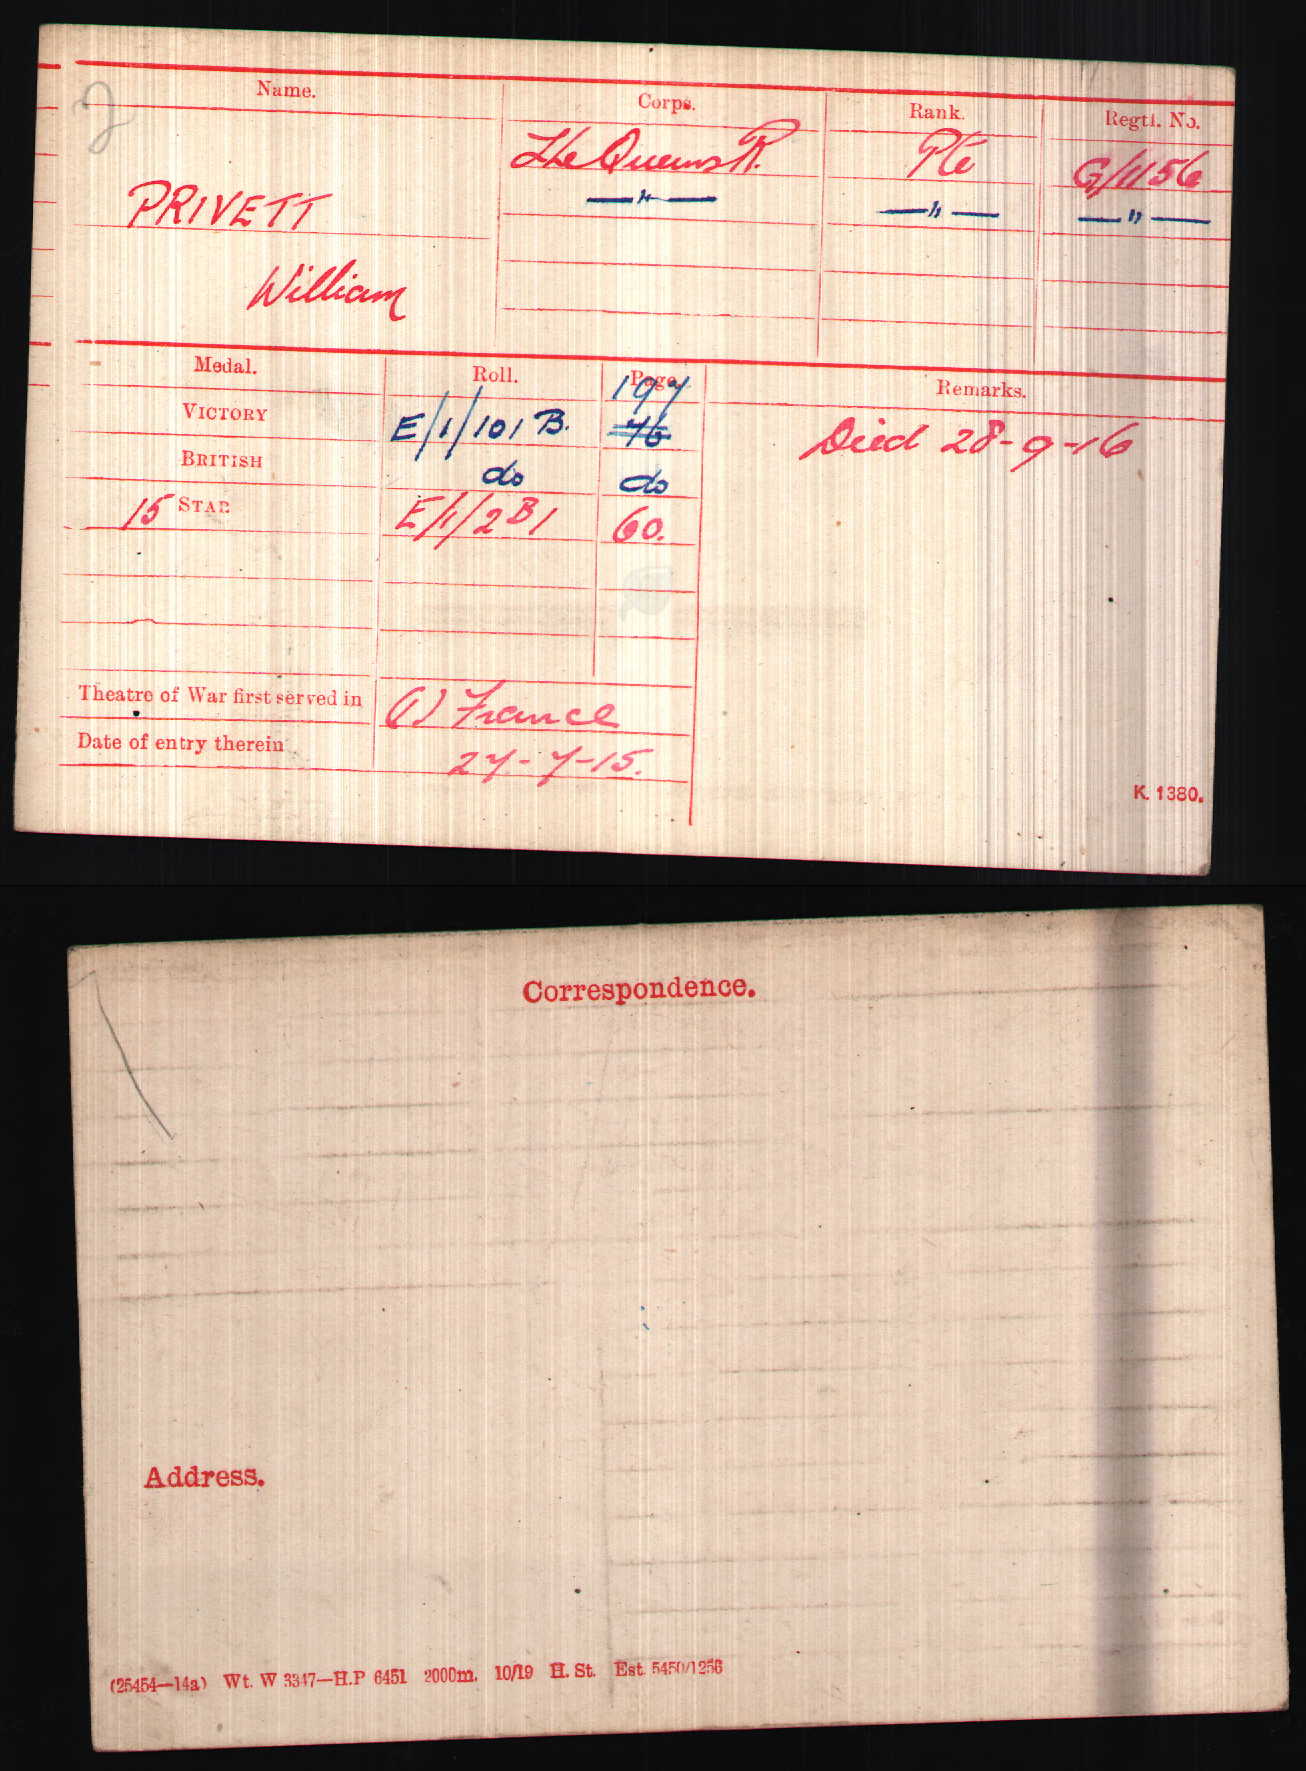 Name. Corps. Rank. Regtl. No.
The Queens R. Pte G/1156
PRIVETT —"— —"— —"—
William
Medal. Roll. Page. Remarks.
197
VICTORY E/1/101 B. 76 Died 28-9-16
BRITISH do do
15 STAR E/1/2 B1 60.
Theatre of War first served in (1) France
Date of entry therein 27-7-15.
K. 1380.
Correspondence.
Address.
(25454—14a) Wt. W 3347—H.P 6451 2000m. 10/19 H. St. Est. 5450/1256